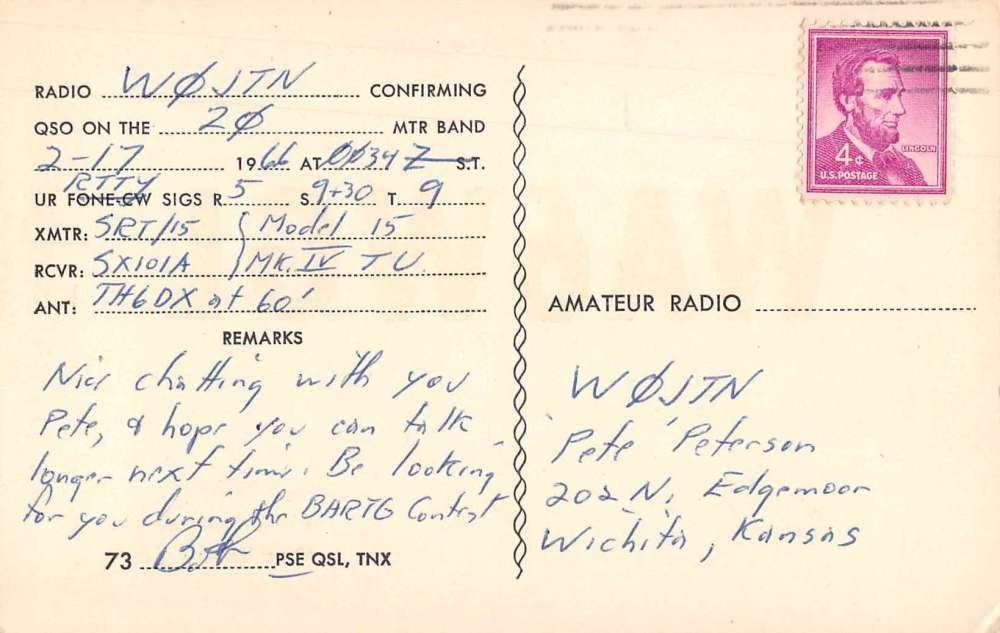 RADIO WØJTN CONFIRMING
QSO ON THE 20 MTR BAND
2-17 1966 AT 0034 Z S.T.
RTTY
UR FONE-CW SIGS R 5 S 9+30 T 9
XMTR: SRT/15 { Model 15
RCVR: SX101A } MK. IV TU.
ANT: TH6DX at 60'
REMARKS
Nice chatting with you
Pete, & hope you can talk
longer next time. Be looking
for you during the BARTG Contest
73 PSE QSL, TNX
4¢ LINCOLN
U.S. POSTAGE
AMATEUR RADIO
WØJTN
"Pete" Peterson
202 N. Edgemoor
Wichita, Kansas